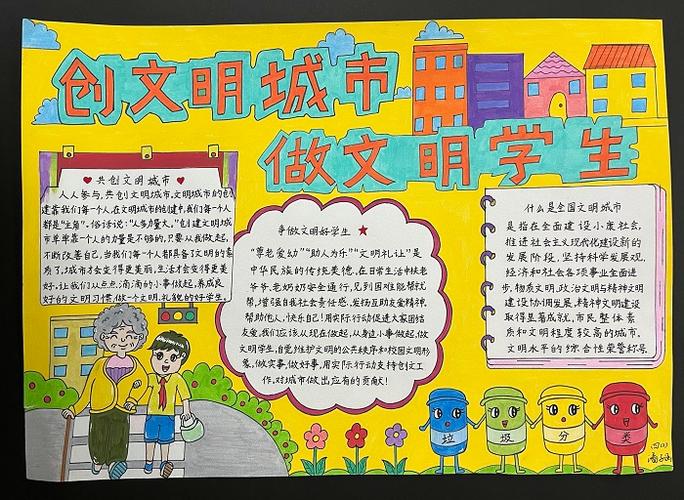 创文明城市
做文明学生
共创文明城市
人人参与,共创文明城市,文明城市的创
建靠我们每一个人,在文明城市的创建中,我们每一个人
都是“主角”。俗话说:“人多力量大。”创建文明城
市单单靠一个人的力量是不够的,只要从我做起,
不断改善自己,当我们每一个人都具备了文明的素
质了,城市才会变得更美丽,生活才会变得更美
好。让我们从点点滴滴的小事做起,养成良
好的文明习惯,做一个文明、礼貌的好学生。
争做文明好学生
“尊老爱幼”“助人为乐”“文明礼让”是
中华民族的传统美德。在日常生活中扶老
爷爷、老奶奶安全通行,见到困难能帮就
帮,增强自我社会责任感,发扬互助友爱精神
帮助他人,快乐自己!用实际行动促进大家团结
友爱。我们应该从现在做起,从身边小事做起,做
文明学生,自觉维护文明的公共秩序和校园文明形
象,做实事,做好事,用实际行动支持创文工
作,对城市做出应有的贡献!
什么是全国文明城市
是指在全面建设小康社会,
推进社会主义现代化建设新的
发展阶段,坚持科学发展观,
经济和社会各项事业全面进
步,物质文明,政治文明与精神文明
建设协调发展,精神文明建设
取得显著成就,市民整体素
质和文明程度较高的城市。
文明水平的综合性荣誉称号
垃 圾 分 类